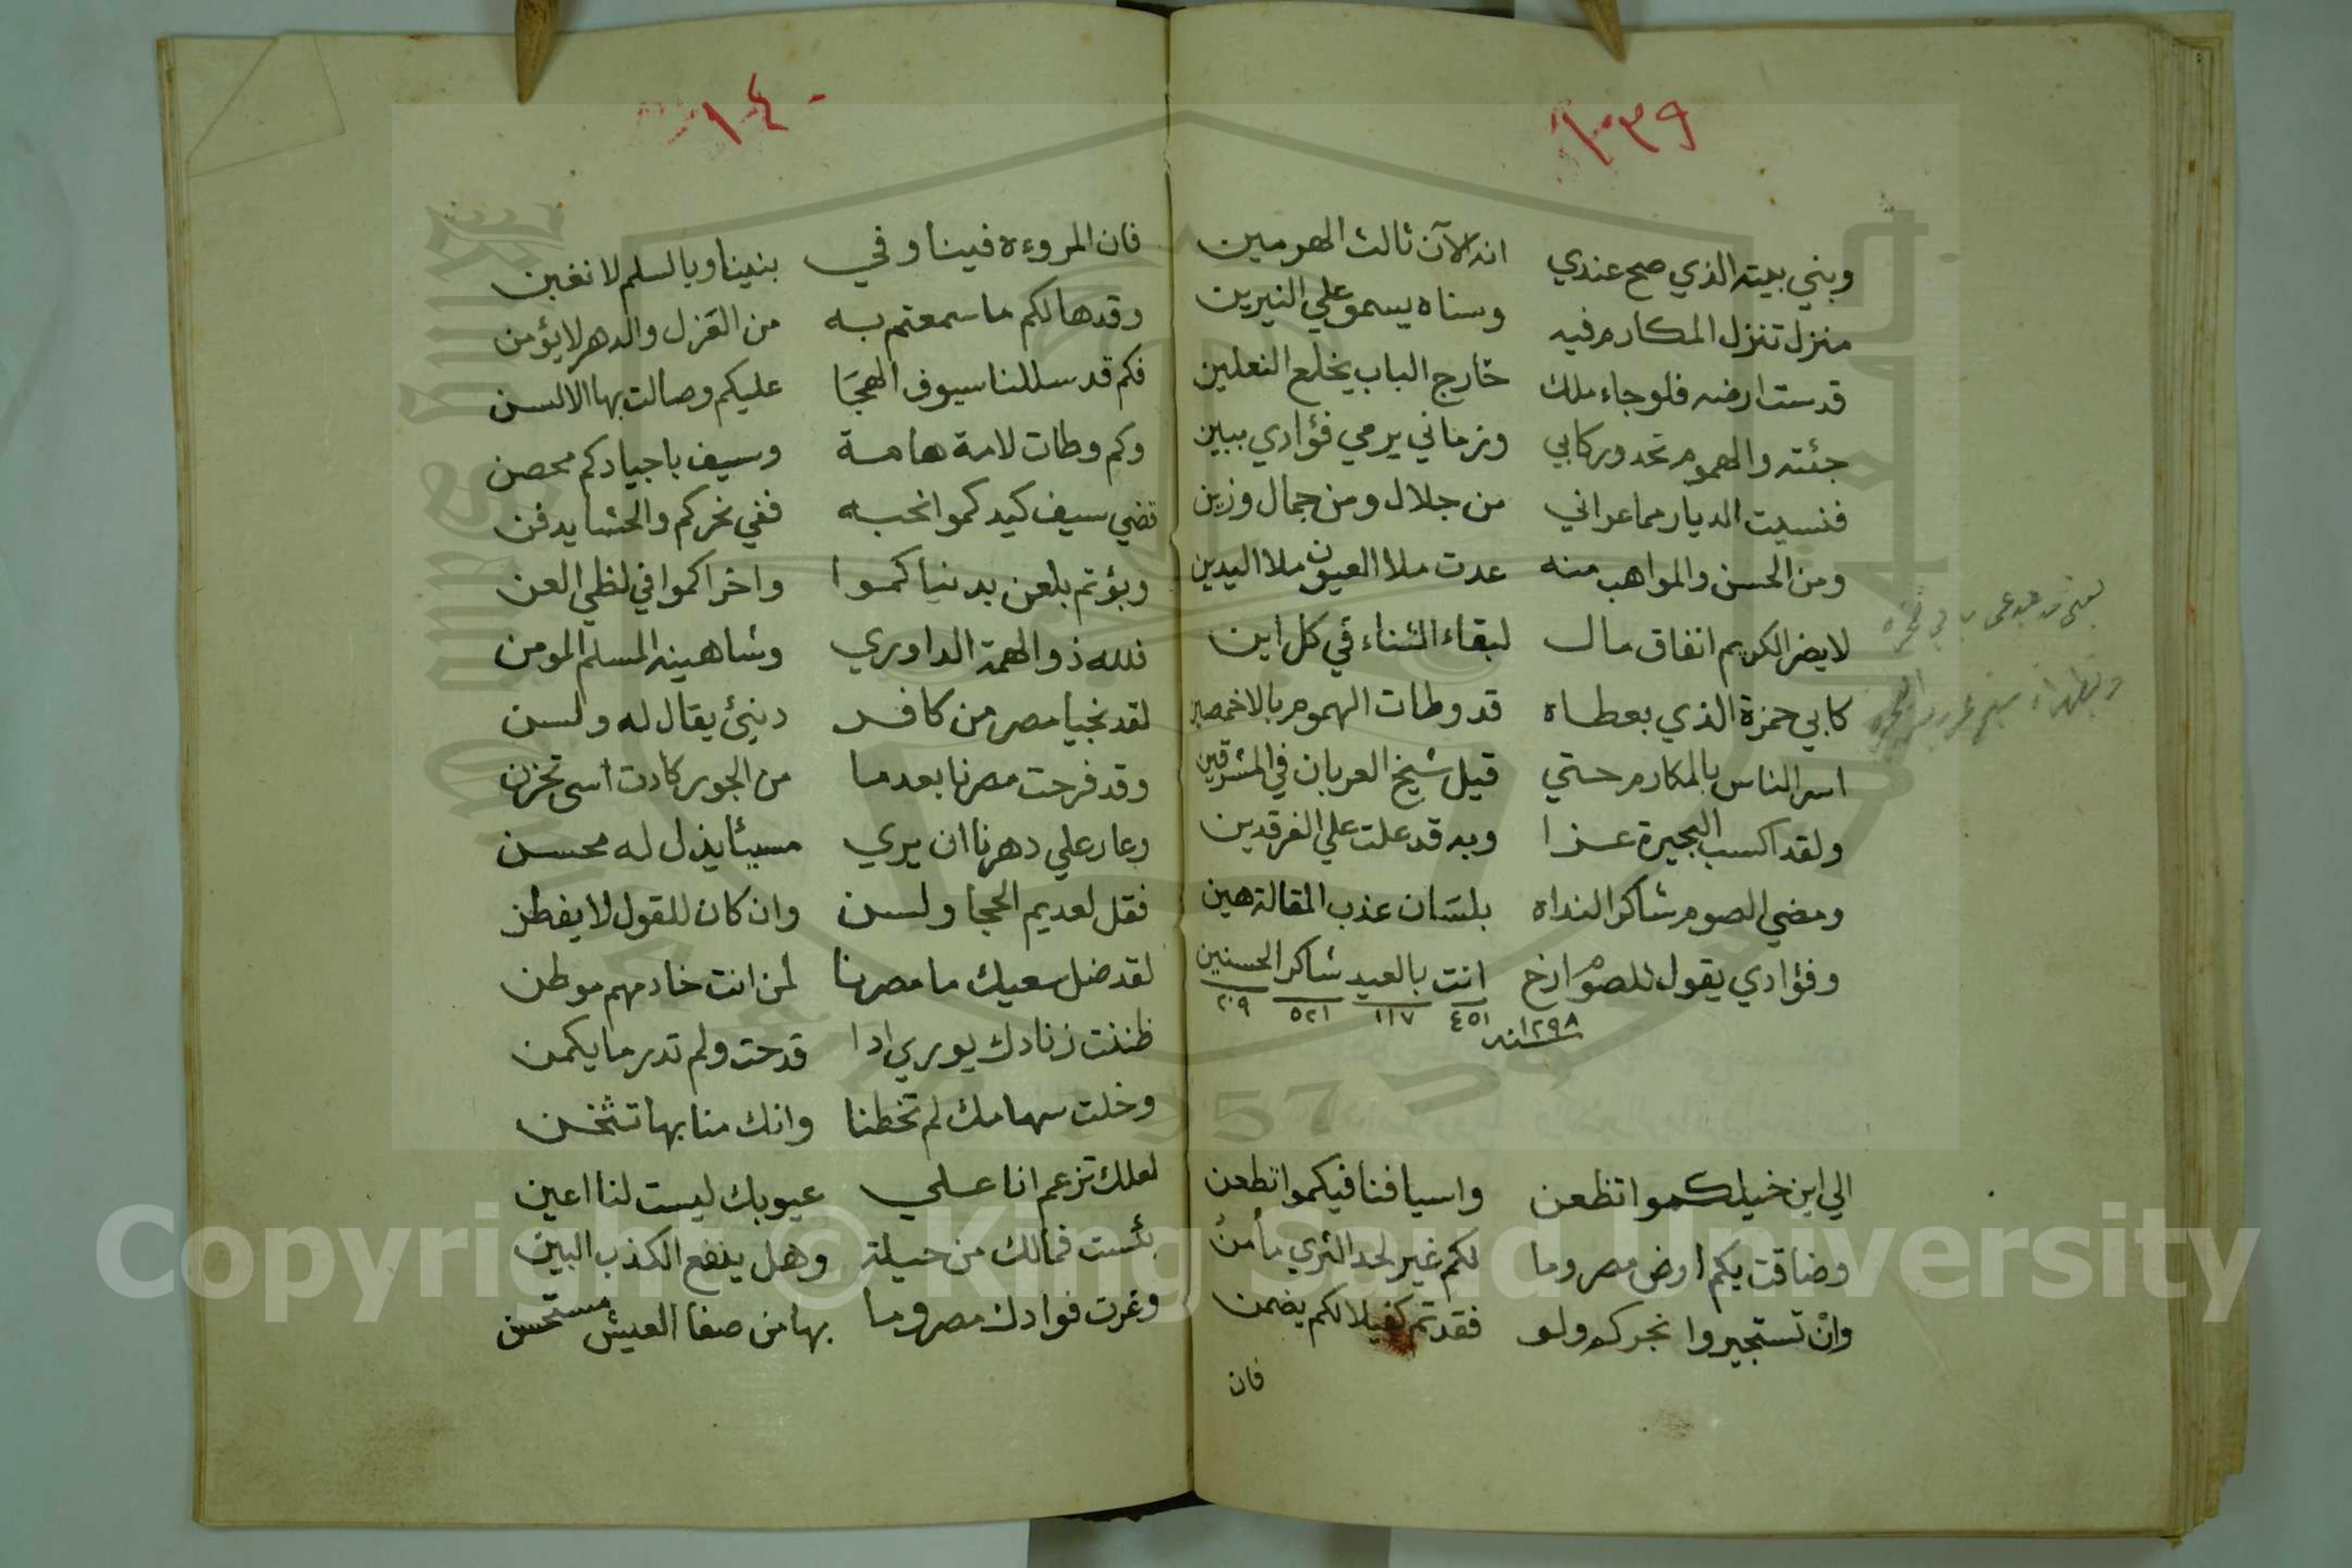 ١٣٩
وبني بيته الذي صح عندي انه الآن ثالث الهرمين
منزل تنزل المكارم فيه وسناه يسمو علي النيرين
قدست ارضه فلو جاء ملك خارج الباب يخلع النعلين
جئته والهموم تحدو ركابي وزماني يرمي فؤادي ببين
فنسيت الديار مما عراني من جلال ومن جمال وزين
ومن الحسن والمواهب منه عدت ملا العيون ملا اليدين
لا يضر الكريم انفاق مال لبقاء الثناء في كل اين
كابي حمزة الذي بعطاه قد وطات الهموم بالاخمصين
اسر الناس بالمكارم حتي قيل شيخ العربان في المشرقين
ولقد اكسب البحيرة عزا وبه قد علت علي الفرقدين
ومضي الصوم شاكرا لنداه بلسان عذب المقالة هين
وفؤادي يقول للصوم ارخ انت بالعيد شاكر الحسنين
٤٥١ ١١٧ ٥٢١ ٢٠٩
سنه ١٢٩٨
الي اين خيلكموا تظعن واسيافنا فيكموا تطعن
وضاقت بكم ارض مصر وما لكم غير لحد الثري مأمن
وان تستجيروا نجركم ولو فقدتم كفيلا لكم يضمن
فان
١٤٠
فان المروءة فينا وفي بنينا وبالسلم لا نغبن
وقدها لكم ما سمعتم به من العزل والدهر لا يؤمن
فكم قد سللنا سيوف الهجا عليكم وصالت بها الالسن
وكم وطات لامة هامة وسيف باجيادكم محصن
قضي سيف كيدكموا نحبه ففي نحركم والحشا يدفن
وبؤتم بلعن بدنياكموا واخراكموا في لظي العن
فلله ذو الهمة الداوري وشاهينه المسلم المومن
لقد نجيا مصر من كافر دنيئ يقال له ولسن
وقد فرحت مصرنا بعدما من الجور كادت اسي تحزن
وعار علي دهرنا ان يري مسيئا يذل له محسن
فقل لعديم الحجا ولسن وان كان للقول لا يفطن
لقد ضل سعيك ما مصرنا لمن انت خادمهم موطن
ظننت زنادك يوري اذا قدحت ولم تدر ما يكمن
وخلت سهامك لم تخطنا وانك منا بها تثخن
لعلك تزعم انا علي عيوبك ليست لنا اعين
بئست فمالك من حيلة وهل ينفع الكذب البين
وغرت فوادك مصر وما بها من صفا العيش مستحسن
Copyright © King Saud University
1957